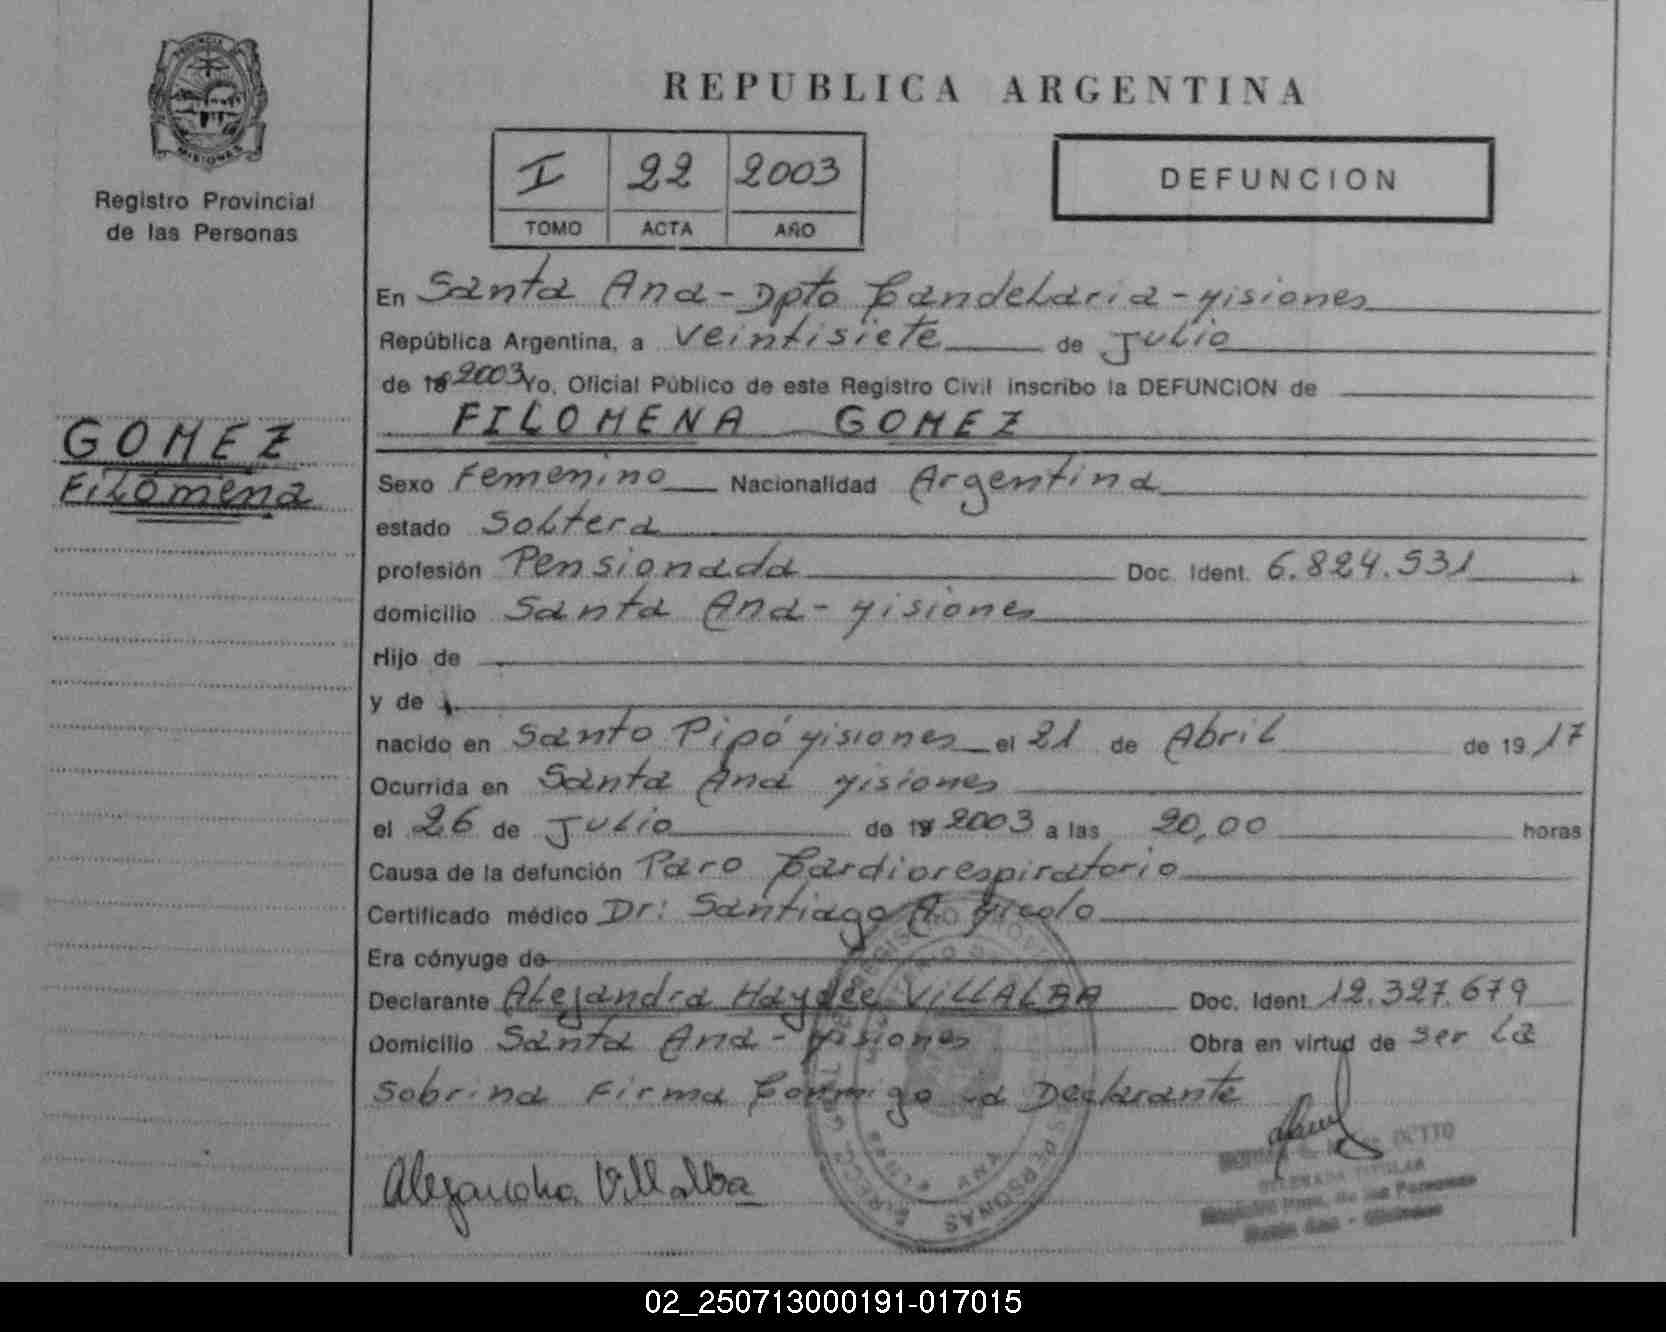 PROVINCIA
MISIONES
Registro Provincial
de las Personas
GOMEZ
Filomena
REPUBLICA ARGENTINA
I 22 2003
TOMO ACTA AÑO
DEFUNCION
En Santa Ana - Dpto Candelaria - Misiones
República Argentina, a veintisiete de Julio
de 19 2003 Yo, Oficial Público de este Registro Civil inscribo la DEFUNCION de
FILOMENA GOMEZ
Sexo Femenino Nacionalidad Argentina
estado Soltera
profesión Pensionada Doc. Ident. 6.824.531
domicilio Santa Ana - Misiones
Hijo de
y de
nacido en Santo Pipó Misiones el 21 de Abril de 19 17
Ocurrida en Santa Ana Misiones
el 26 de Julio de 19 2003 a las 20,00 horas
Causa de la defunción Paro Cardiorespiratorio
Certificado médico Dr: Santiago A.
Era cónyuge de
Declarante Alejandra Haydée VILLALBA Doc. Ident 12.327.679
Domicilio Santa Ana - Misiones Obra en virtud de ser La
Sobrina Firma Conmigo La Declarante
Alejandra Villalba
TITULAR
Registro Prov. de las Personas
Santa Ana - Misiones
02_250713000191-017015